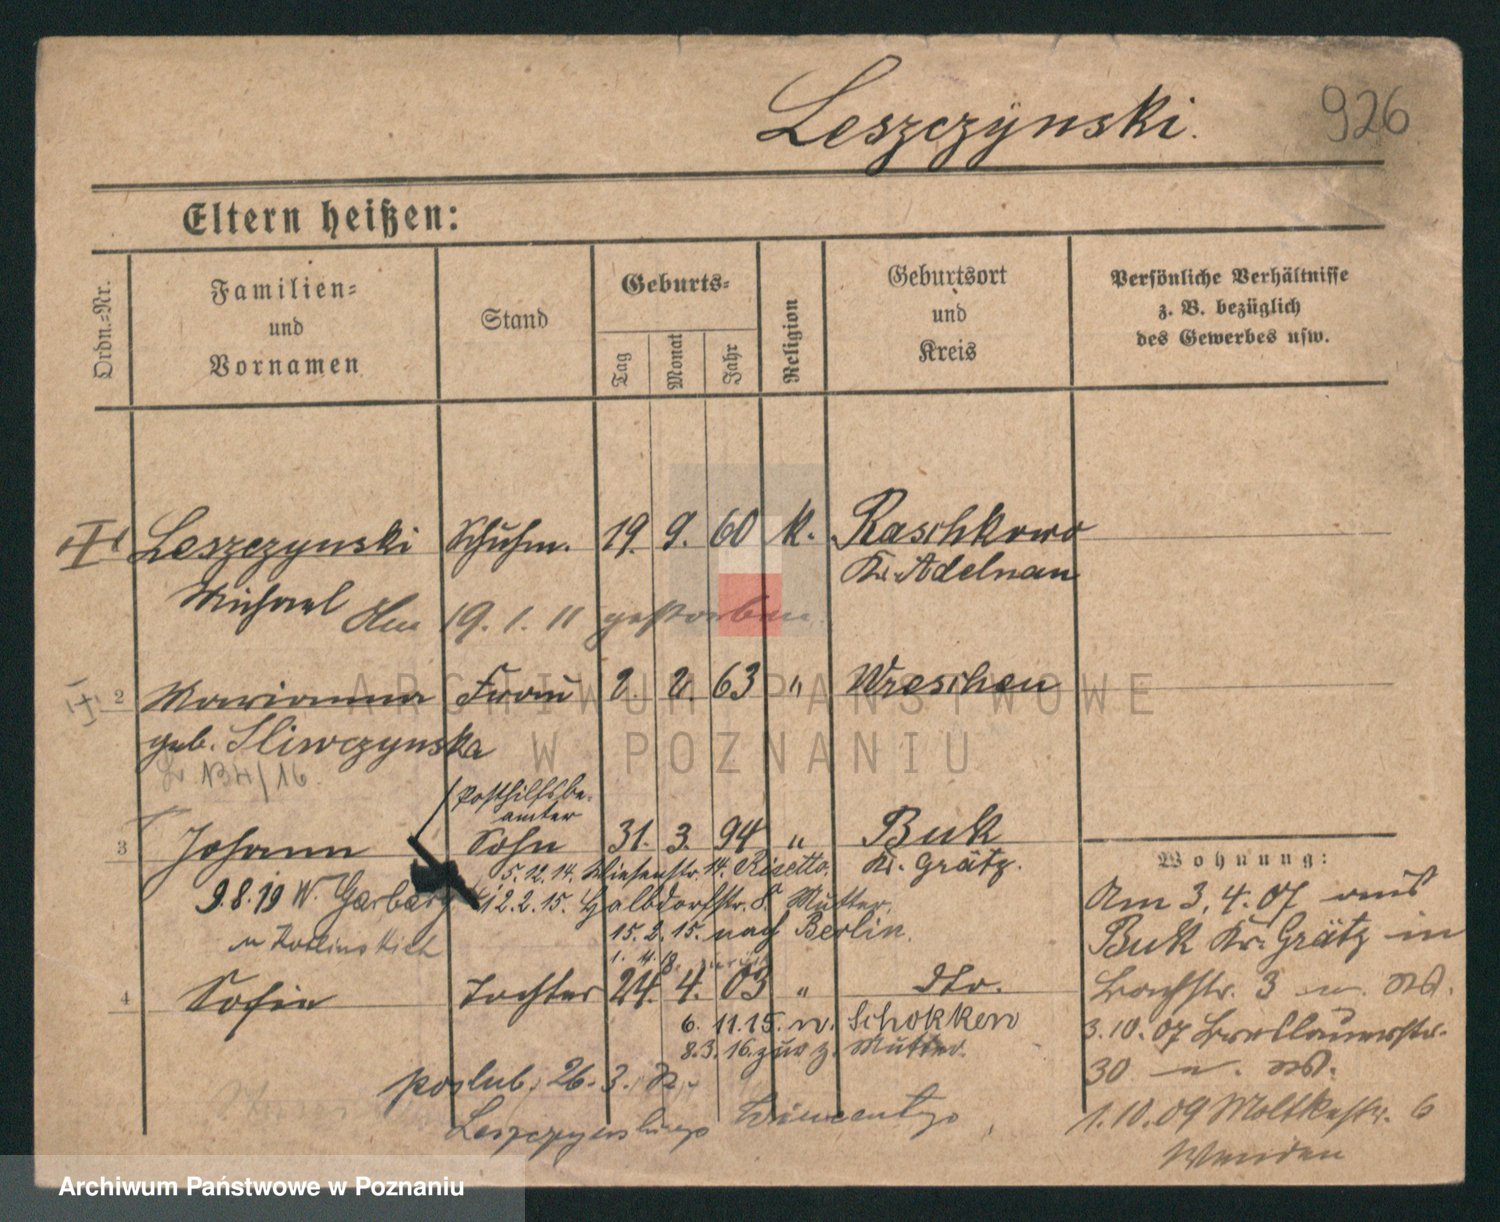 Leszczÿnski.
926
Eltern heißen:
Ordn.-Nr.
Familien-
und
Vornamen
Stand
Geburts-
Tag
Monat
Jahr
Religion
Geburtsort
und
Kreis
Persönliche Verhältnisse
z. B. bezüglich
des Gewerbes usw.
Leszczynski Schuhm. 19. 9. 60 k. Raschkowo
Kr. Adelnau
Michael Am 19. 1. 11 gestorben.
2 Marianna Frau 2. 2. 63 " Wreschen
geb. Sliwczynska
134/16.
Posthilfsbe-
amter
3 Johann Sohn 31. 3. 94 " Buk
Kr. Grätz.
5.12.14. Wiesenstr. 14. Rizetto.
9.8.19 W. Garbary 12.2.15. Haldorfstr. 8. Mutter.
15.2.15. nach Berlin.
1. 4. 18.
4 Sofie Tochter 24. 4. 03 " dto.
6. 11.15. n. Schokken
8.3.16. zur. z. Mutter.
poslub. 26. 3.
Wohnung:
Am 3. 4. 07 aus
Buk Kr. Grätz in
Bachstr. 3
3.10.07 Breslauerstr.
30
1.10.09 Moltkestr. 6
ARCHIWUM PAŃSTWOWE
W POZNANIU
Archiwum Państwowe w Poznaniu